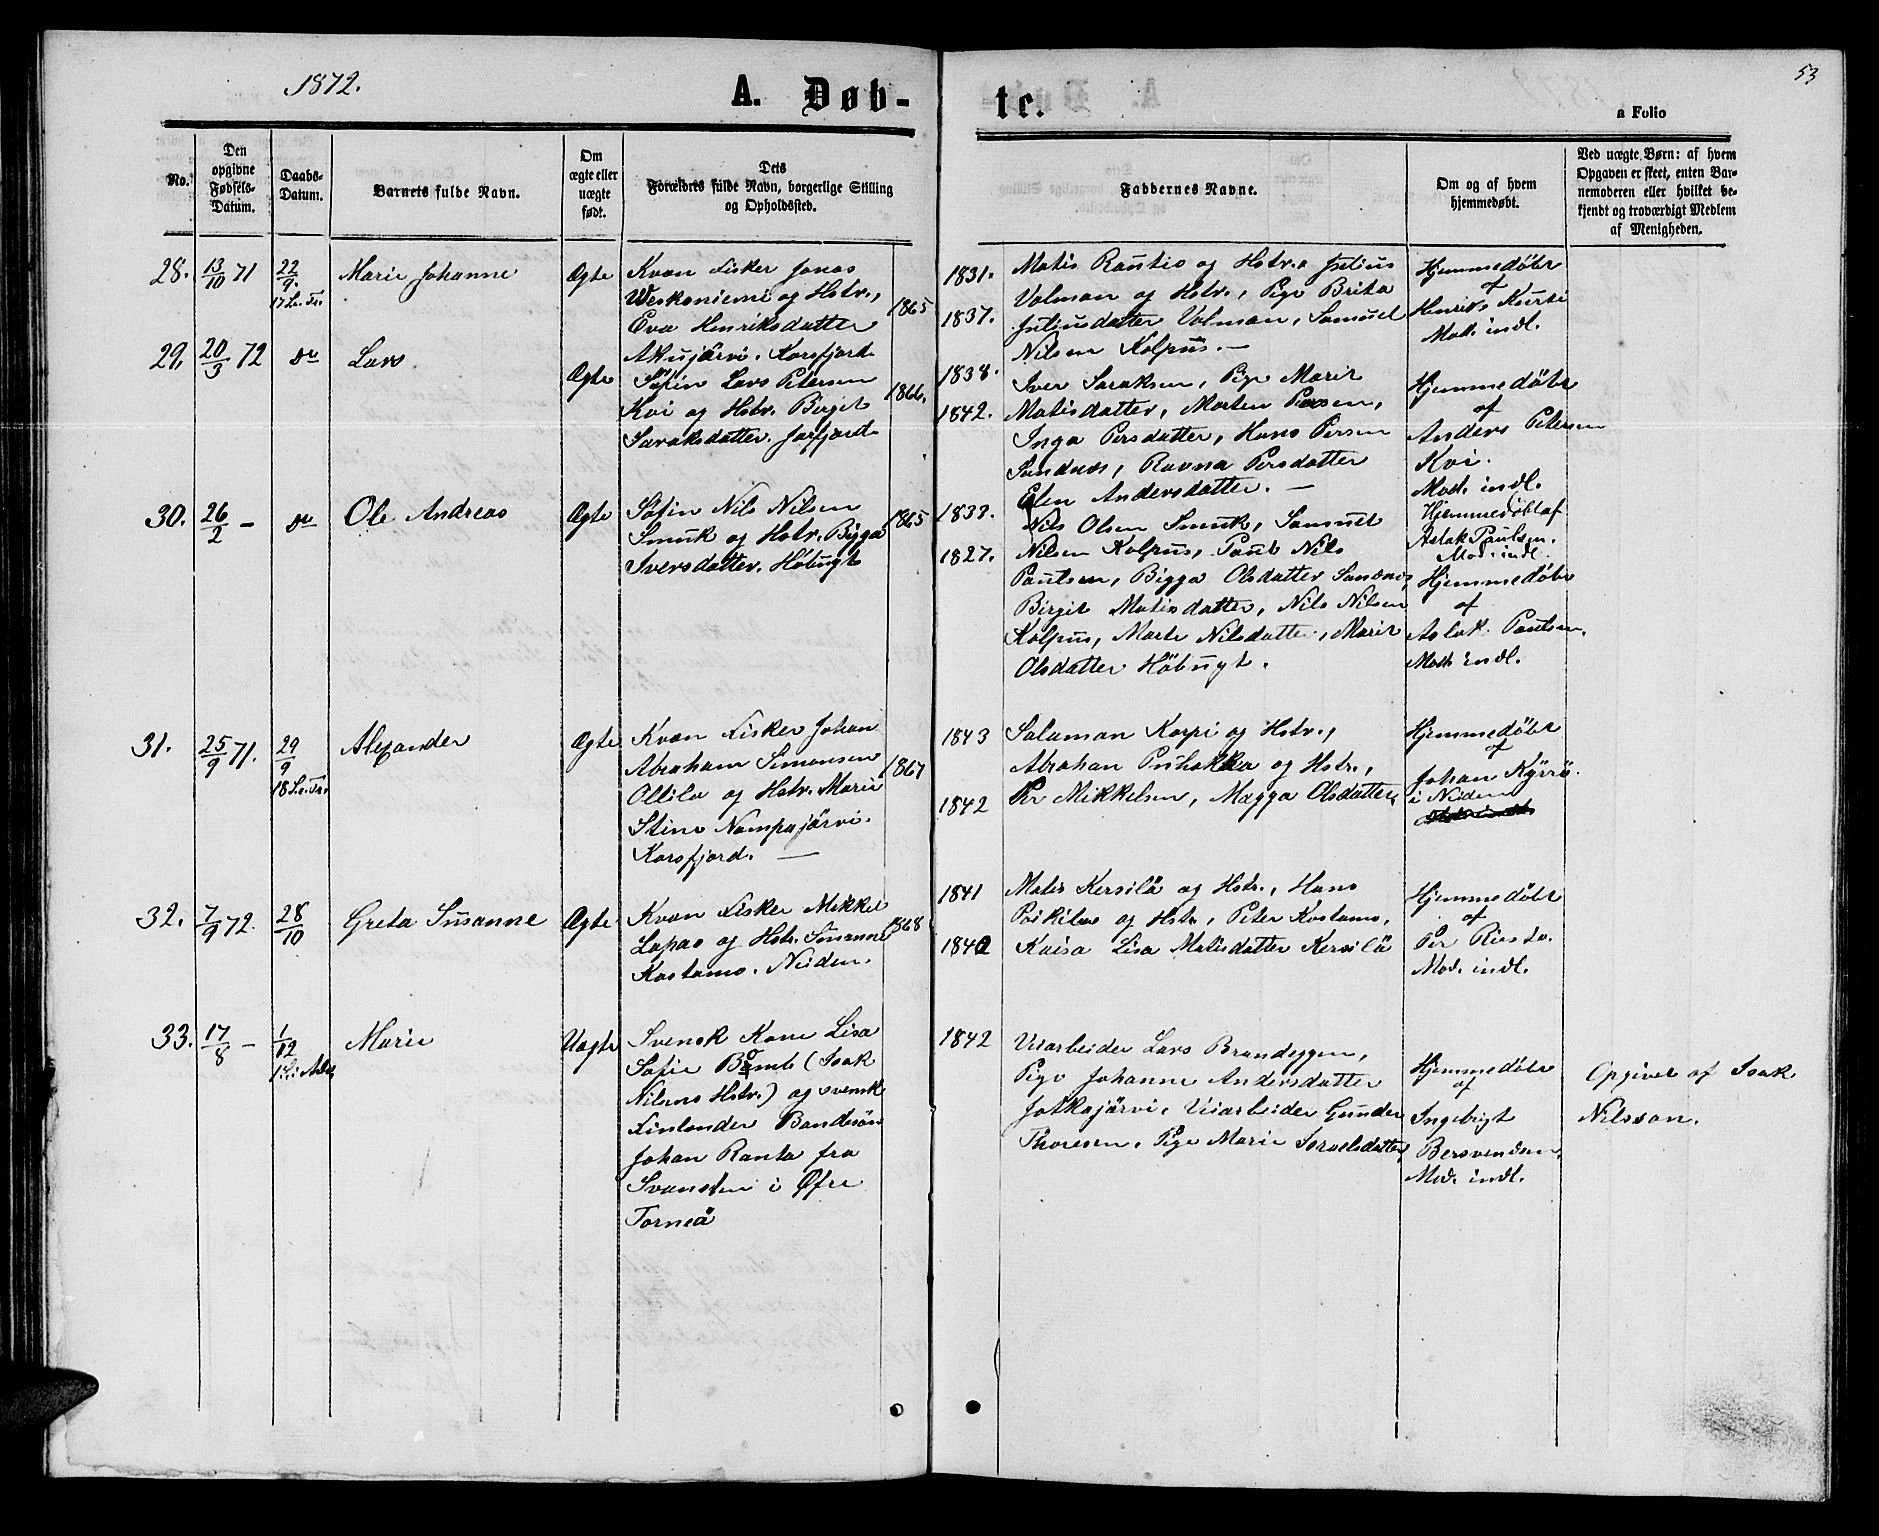 1872.
A. Døb-
No.
Den
opgivne
Fødsels-
Datum.
Daabs-
Datum.
Barnets fulde Navn.
Om
ægte eller
uægte
født.
Dets
Forældres fulde Navn, borgerlige Stilling
og Opholdssted.
28.
13/10 71
22/9.
17 S. e. Tr.
Marie Johanne
Ægte
Kvæn Fisker Jonas
Weskoniemi og Hstr.,
Eva Henriksdatter
Akujärvi. Korsfjord
1865
29.
20/3 72
do
Lars.
Ægte
Søfin Lars Petersen
Kvi og Hstr. Birgit
Saraksdatter. Jarfjord
1866.
30.
26/2 -
do
Ole Andreas
Ægte
Søfin Nils Nilsen
Smuk og Hstr. Bigga
Iversdatter. Höbugt
1865
31.
25/9 71.
29/9
18 S. e. Tr.
Alexander
Ægte
Kvæn Fisker Johan
Abraham Simonsen
Ollila og Hstr. Marie
Stine Nampajärvi.
Korsfjord. —
1867
32.
7/9 72.
28/10
Greta Susanne
Ægte
Kvæn Fisker Mikkel
Lapas og Hstr. Susanne
Kostamo. Neiden.
1868
33.
17/8 -
1/12
1 S. i Adv.
Marie
Uægte
Svensk Kone Lisa
Sofie Bomb (Isak
Nilsens Hstr.) og svensk
Finlænder Bondesøn
Johan Ranta fra
Svansten i Øfre
Torneå
te.
53
a Folio
Faddernes Navne.
Om og af hvem
hjemmedøbt.
Ved uægte Børn: af hvem
Opgaven er skeet, enten Bar-
nemoderen eller hvilket be-
kjendt og troværdigt Medlem
af Menigheden.
1831.
1837.
Matis Rautio og Hstr., Julius
Volman og Hstr., Pige Brita
Juliusdatter Volman, Samuel
Nilsen Kolpus. —
Hjemmedöbt
af
Henrik Kurti
Mod. indl.
1838.
1842.
Iver Saraksen, Pige Marit
Matisdatter, Morten Persen,
Inga Persdatter, Hans Persen
Sandnes, Ravna Persdatter
Elen Andersdatter. —
Hjemmedöbt
af
Anders Petersen
Kvi.
Mod. indl.
1833.
1827.
Nils Olsen Smuk, Samuel
Nilsen Kolpus, Paul Nils
Paulsen, Bigga Olsdatter Sandnes,
Birgit Matisdatter, Nils Nilsen
Kolpus, Marti Nilsdatter, Marit
Olsdatter Höbugt.
Hjemmedöbt af
Aslak Paulsen.
Mod. indl.
Hjemmedöbt
af
Aslak Paulsen.
Mod. indl.
1843
1842
Salaman Korpi og Hstr.,
Abraham Puhakka og Hstr.,
Per Mikkelsen, Magga Olsdatter,
Hjemmedöbt
af
Johan Kyrrö.
i Neiden
1841
1840
Matis Kersilä og Hstr., Hans
Poikilas og Hstr., Peter Kostamo,
Kaisa Lisa Matisdatter Kersilä
Hjemmedöbt
af
Per Riesto.
Mod. indl.
1842
Veiarbeider Lars Brandeggen,
Pige Johanne Andersdatter
Jotkajärvi, Veiarbeider Gunder
Thoresen, Pige Marie Israelsdatter,
Hjemmedöbt
af
Ingebrigt
Bersvendsen,
Mod. indl.
Opgivet af Isak
Nilsson.